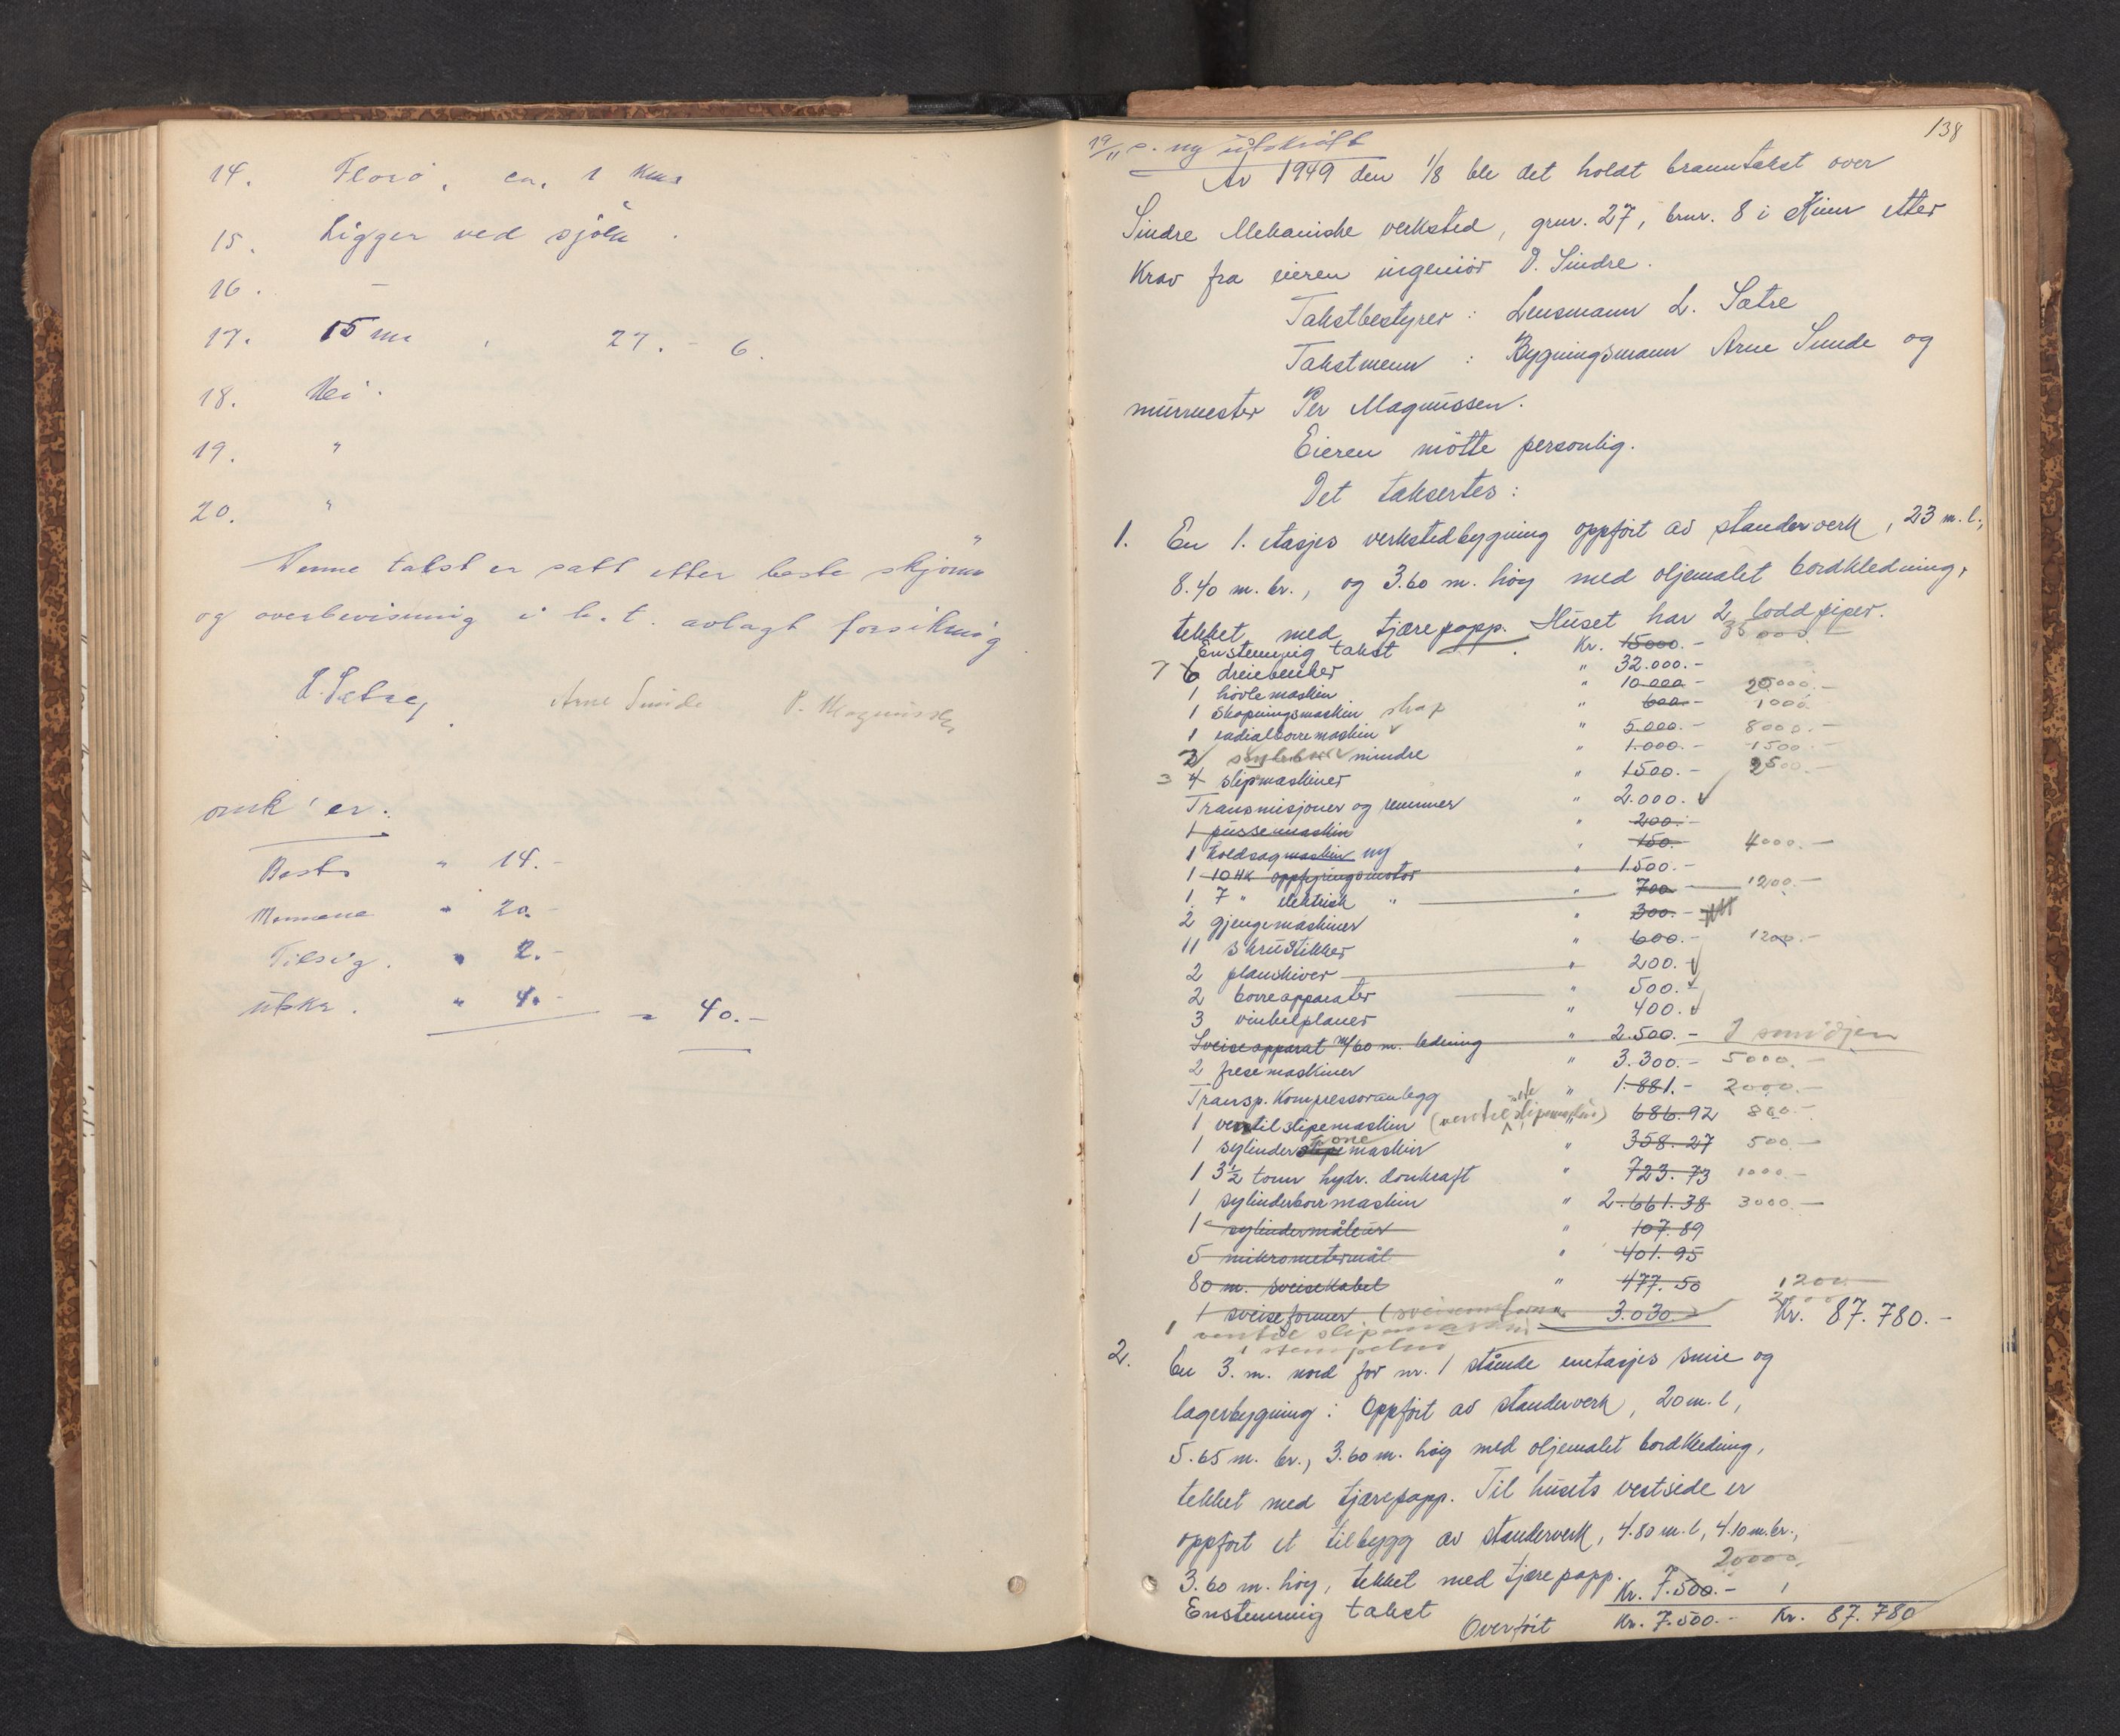 14. Florö, ca. 1 km
15. Ligger ved sjöen.
16. –
17. 15 m, 27. - 6.
18. Nei.
19. "
20. "
Denne takst er satt etter beste skjönn
og overbevisning i h.t. avlagt forsikring
L. Sætre, Arne Sunde P. Magnussen
omk'er:
Best. " 14.-
Mennene " 20.-
Tilsig. " 2.-
Utskr. " 4.- = 40.-
138
19/11 s. ny utskrift
År 1949 den 1/8 ble det holdt branntakst over
Sindre Mekaniske verksted, grnr. 27, brnr. 8 i Kinn etter
krav fra eieren ingeniör O. Sindre.
Takstbestyrer : Lensmann L. Sætre
Takstmenn : Bygningsmann Arne Sunde og
murmester Per Magnussen.
Eieren mötte personlig.
Det taksertes:
1. En 1. etasjes verkstedbygning oppfört av standerverk, 23 m. l.,
8.40 m. br., og 3.60 m. höy med oljemalet bordkledning,
tekket med tjærepapp. Huset har 2 loddpiper.
Enstemmig takst Kr. 15000.- 35000.
7 6 dreiebenker " 32.000.-
1 hövlemaskin " 10.000.- 20000.-
1 shapningsmaskin shap " 600.- 1000.
1 radialborremaskin " 5.000.- 8000.-
2 mindre " 1.000.- 1500.-
3 4 slipmaskiner " 1500.- 2500.-
Transmisjoner og remmer " 2.000.
1 pussemaskin " 200.-
1 koldsagmaskin ny " 150.- 4000.-
1 10 HK oppfyringsmotor " 1.500.-
1 7 " elektrisk " " 700.- 1200.-
2 gjengemaskiner " 300.-
11 skrustikker " 600.- 1200.-
2 planskiver " 200.
2 borreapparater " 500.
3 vinkelplaner " 400.
Sveiseapparat m/60 m. ledning " 2.500.- I smidjen
2 fresemaskiner " 3.300.- 5000.-
Transp. kompressoranlegg " 1.881.- 2000.-
1 ventilslipemaskin (ventilsete slipemaskin) " 686.92 800.-
1 sylinderslipemaskin " 358.27 500.-
1 3½ tonn hydr. donkraft " 723.73 1000.-
1 sylinderborrmaskin " 2.661.38 3000.-
1 sylindermåleur " 107.89
5 mikrometermål " 401.95
80 m. sveisekabel " 477.50 1200.-
1 sveiseformer " 3.030 2000 Kr. 87.780.-
1 ventil slipemaskin
1 stempelm
2. En 3. m. nord for nr. 1 stående enetasjes smie og
lagerbygning: Oppfört av standerverk, 20 m. l,
5.65 m. br., 3.60 m. höy med oljemalet bordkledning,
tekket med tjærepapp. Til husets vestside er
oppfört et tilbygg av standerverk, 4.80 m. l, 4.10 m. br.,
3.60 m. höy, tekket med tjærepapp. 20000
Enstemmig takst Kr. 7.500.-
Overfört Kr. 7.500.- Kr. 87.780